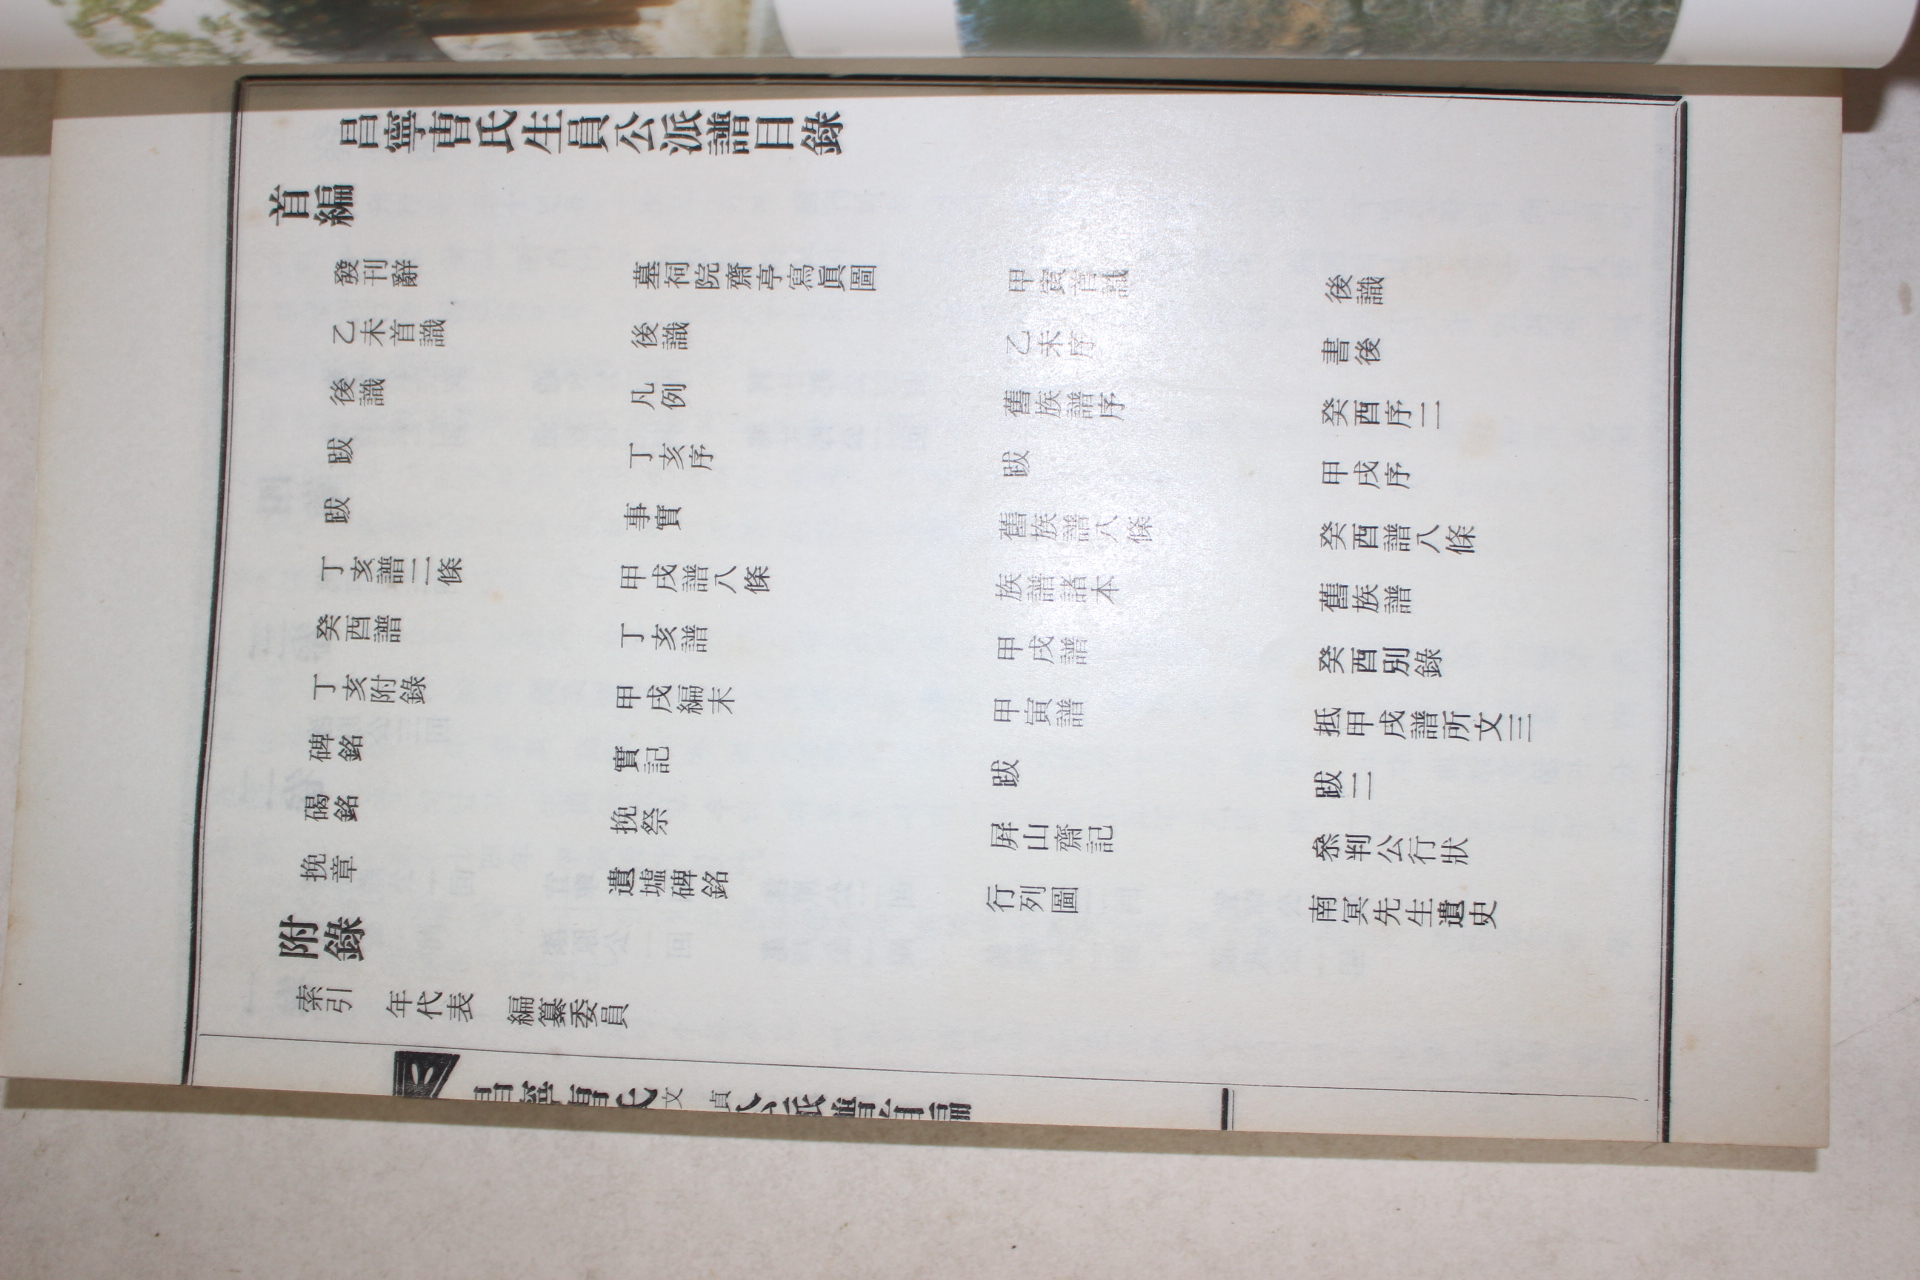 昌寧曺氏生員公派譜目錄
首編
發刊辭 墓祠院齋亭寫眞圖 甲寅首識 後識
乙未首識 後識 乙未序 書後
後識 凡例 舊族譜序 癸酉序二
跋 丁亥序 跋 甲戌序
跋 事實 舊族譜八條 癸酉譜八條
丁亥譜二條 甲戌譜八條 族譜諸本 舊族譜
癸酉譜 丁亥譜 甲戌譜 癸酉別錄
丁亥附錄 甲戌編末 甲寅譜 抵甲戌譜所文三
碑銘 實記 跋 跋二
碣銘 挽祭 屛山齋記 參判公行狀
挽章 遺墟碑銘 行列圖 南冥先生遺史
附錄
索引 年代表 編纂委員
昌寧曺氏文貞公派譜